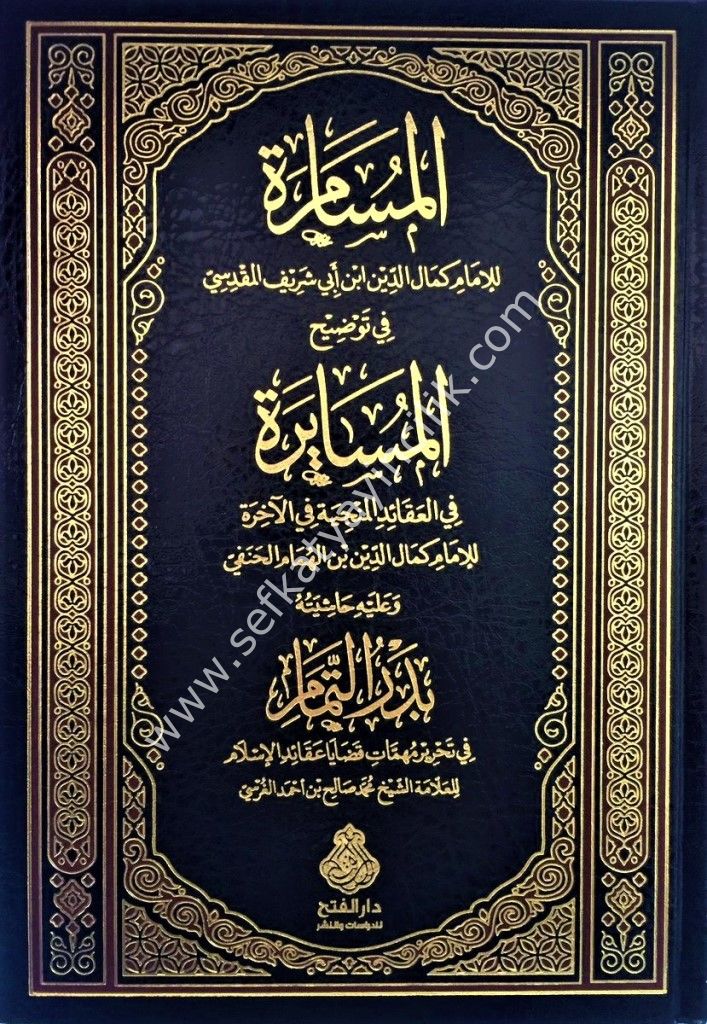 المُسَامَرَة
للإمَامِ كمَال الدِّين ابن أَبي شَرِيف المَقْدِسِيّ
فِي تَوْضِيْح
المُسَايَرَة
فِي العَقَائِدِ المُنْجِيَةِ فِي الآخِرَة
للإمَامِ كمَال الدِّين بن الهُمَام الحَنَفِيّ
وَعَلَيْهِ حَاشِيَتُهُ
بَدْرُ التَّمَام
فِي تَحْرِيرِ مُهِمَّاتِ قَضَايَا عَقَائِدِ الإِسْلَام
للعَلّامَة الشَّيْخ مُحَمَّد صَالِح بن أَحْمَد الغُرْسِيّ
دار الفتح
للدراسات والنشر
www.sefkatyayincilik.com